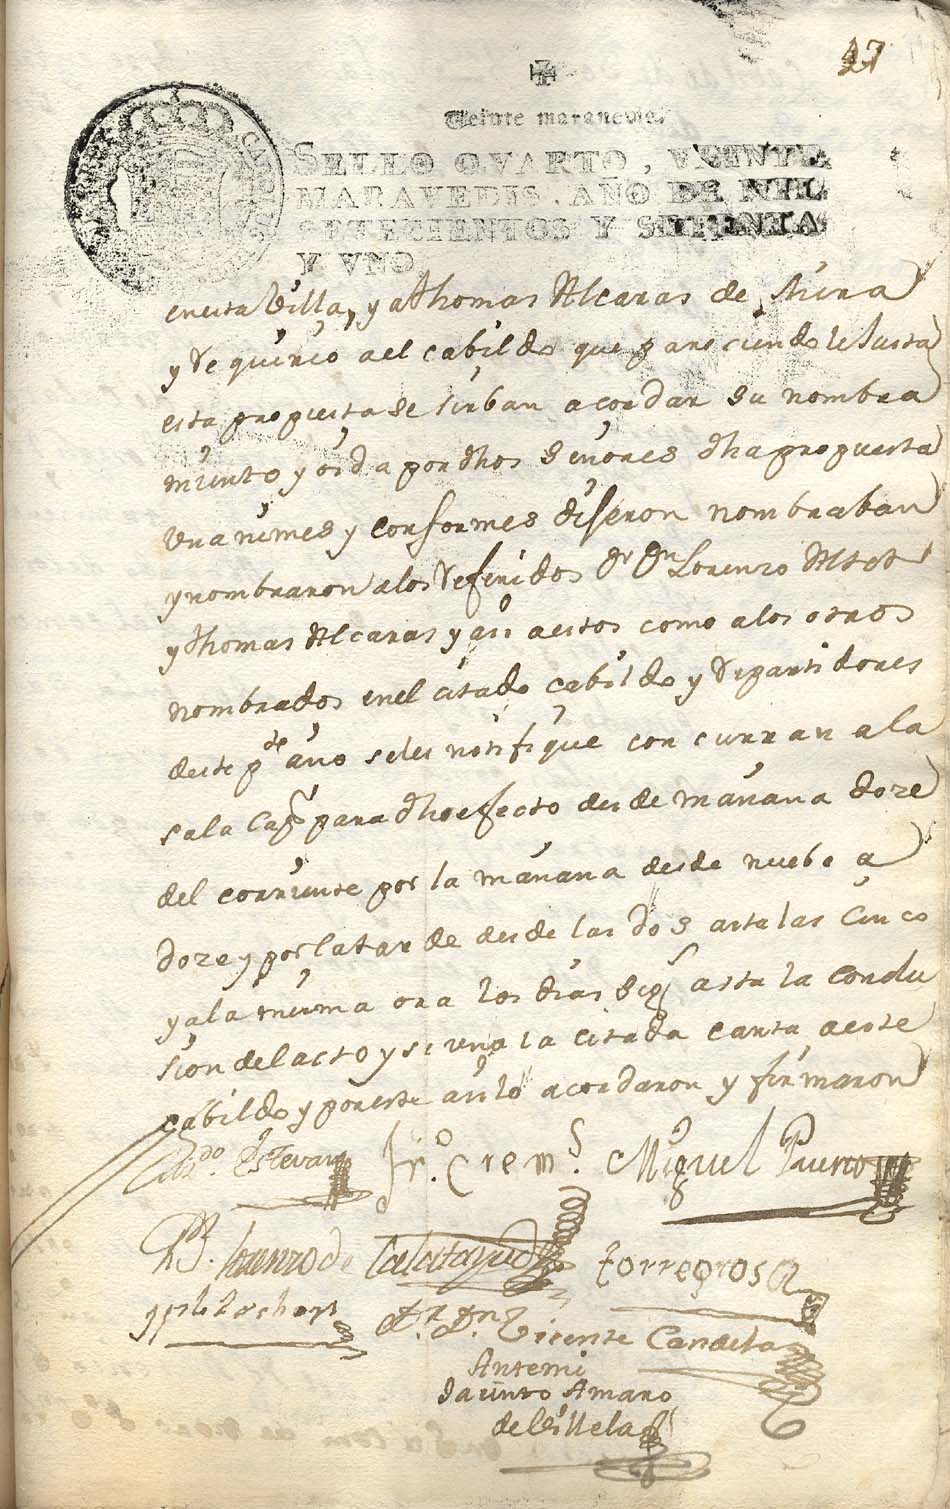 47
Veinte maravedis.
SELLO QVARTO, VEINTE
MARAVEDIS, AÑO DE MIL
SETECIENTOS Y SETENTA
Y VNO
CAROLUS
en esta Villa, y a Thomas Alcaras de
y requirio a el cabildo que pareciendole Justa
esta propuesta se sirban acordar su nombra
miento y oida por dhos Señores dha propuesta
Vnanimes y conformes dijeron nombraban
y nombraron a los Referidos Dr Dn Lorenzo
y Thomas Alcaras y asi a estos como a los otros
nombrados en el citado cabildo y repartidores
deste pte año se les notifique concurran a la
sala Capr para dho efecto desde mañana doze
del corriente por la mañana desde nuebe a
doze y por la tarde desde las dos asta las Cinco
y a la misma ora los dias sigs asta la Conclu
sion del acto y se una la citada carta a este
cabildo y por este asi lo acordaron y firmaron
Estevan Frco Crems Miguel Puerto
Lorenzo de Calatayud Torregrosa
Dr Dn Vicente Candela
Antemi
Jacinto Amaro
de Villela